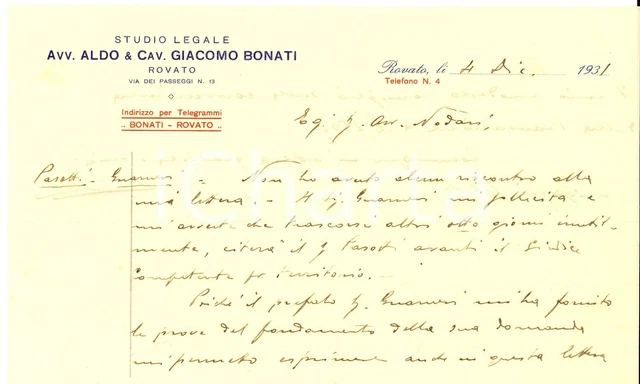 STUDIO LEGALE
AVV. ALDO & CAV. GIACOMO BONATI
ROVATO
VIA DEI PASSEGGI N. 13
Indirizzo per Telegrammi
.. BONATI - ROVATO ..
Rovato, lì 4 Dic. 1931
Telefono N. 4
Eg. Sg. Avv. Nodari,
Pasotti - Guarneri - Non ho avuto alcun riscontro alla
mia lettera. - Il Sig. Guarneri mi sollecita e
mi avverte che trascorsi altri otto giorni inutil-
mente, citerà il Sg. Pasotti avanti il Giudice
Competente per territorio. -
Poiché il prefato Sg. Guarneri mi ha fornito
le prove del fondamento della sua domanda
mi permetto esprimere anche in questa lettera
iCharta